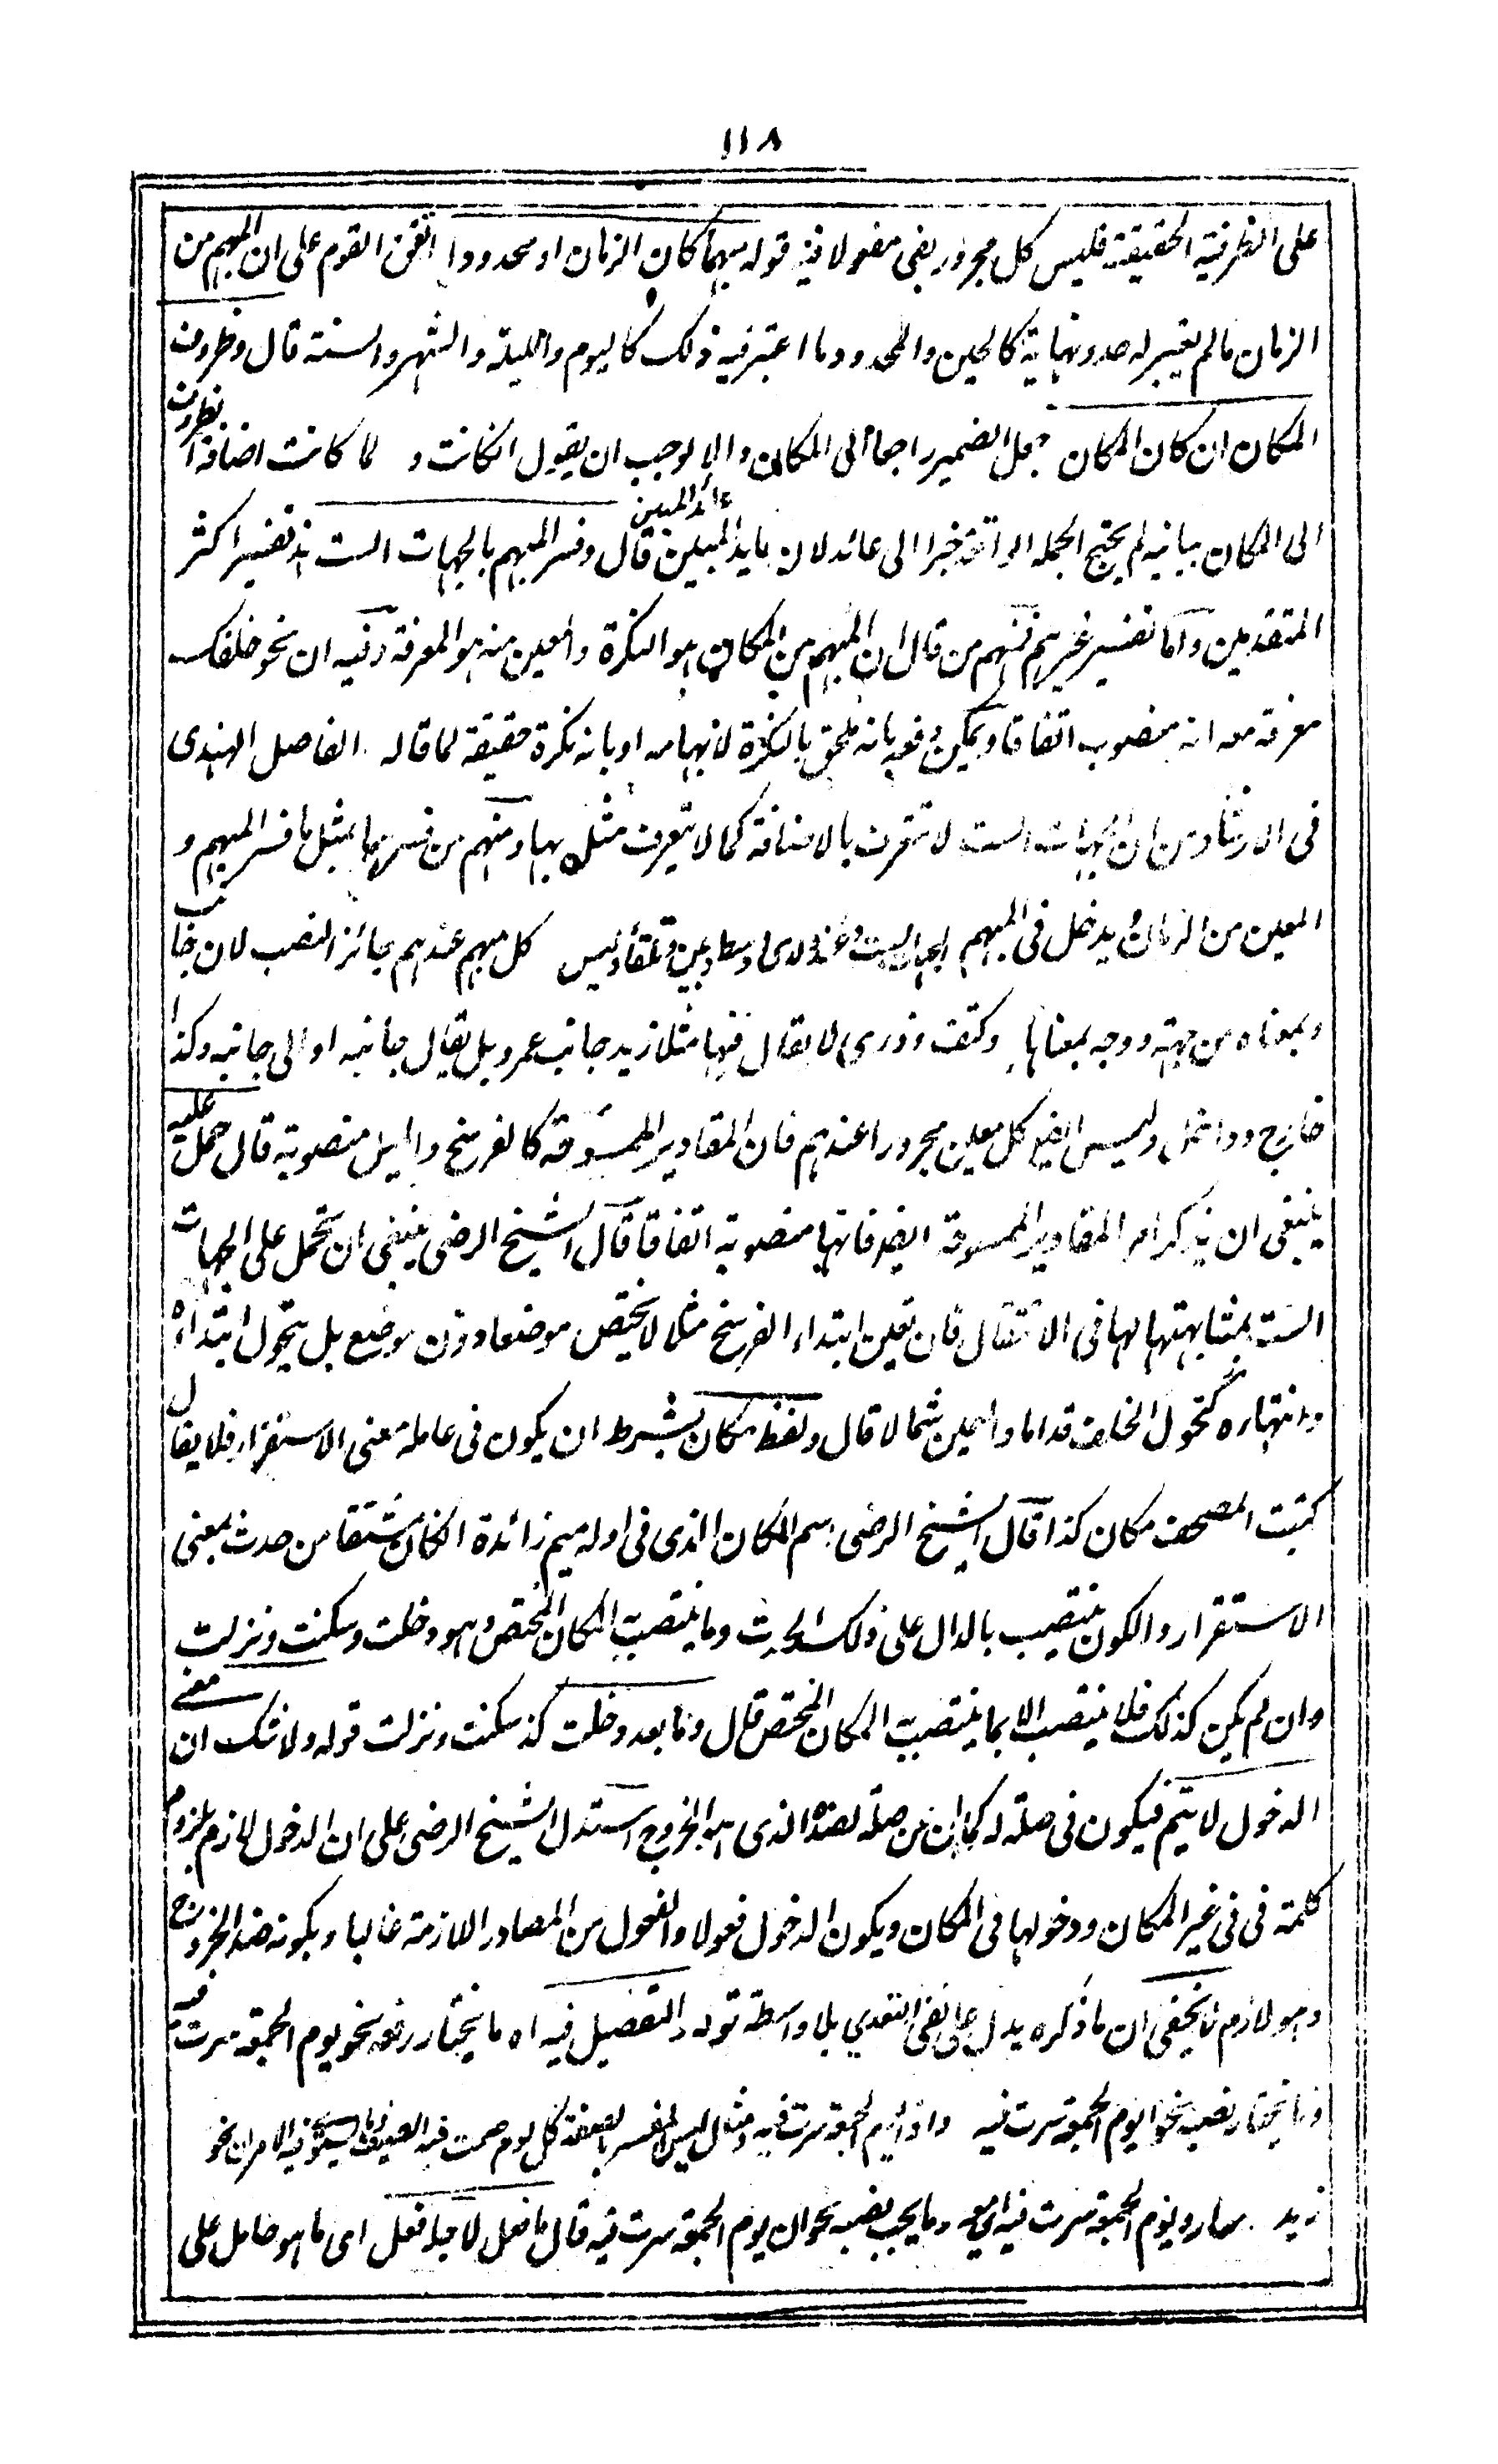 ١١٨
على الظرفية الحقيقة فليس كل مجرور بفى مفعولا فيه قوله مبهما كان الزمان او محدودا اتفق القوم على ان المبهم من
الزمان ما لم يعتبر له حد ونهاية كالحين والمحدود ما اعتبر فيه ذلك كاليوم والليلة والشهر والسنة قال وظروف
المكان ان كان المكان جعل الضمير راجعا الى المكان والا لوجب ان يقول ان كانت و لما كانت اضافة الظروف
الى المكان بيانية لم يحتج الجملة الواقعة خبرا الى عائد لان عائد المبين عائد المبين قال وفسر المبهم بالجهات الست هذا تفسير اكثر
المتقدمين واما تفسير غيرهم فمنهم من قال ان المبهم من المكان هو النكرة والمعين منه هو المعرفة وفيه ان نحو خلفك
معرفة مع انه منصوب اتفاقا ويمكن دفعه بانه ملحق بالنكرة لابهامه او بانه نكرة حقيقة لما قاله الفاضل الهندى
فى الارشاد من ان الجهات الست لا تتعرف بالاضافة كما لا يتعرف مثل بها ومنهم من فسرهما بمثل ما فسر المبهم و
المعين من الزمان فيدخل فى المبهم الجهات الست وعند ولدى ووسط وبين وتلقاء وليس كل مبهم عندهم جائز النصب لان جانب
وبمعناه من جهة ووجه بمعناها وكنف وذرى لا يقال فيها مثلا زيد جانب عمرو بل يقال بجانبه او الى جانبه وكذا
خارج وداخل وليس ايضا كل معين مجرورا عندهم فان المقادير الممسوحة كالفرسخ والميل منصوبة قال حمل عليه
ينبغى ان يذكر امر المقادير الممسوحة ايضا فانها منصوبة اتفاقا قال الشيخ الرضى ينبغى ان تحمل على الجهات
الست لمشابهتها لها فى الانتقال فان تعين ابتداء الفرسخ مثلا لا يختص موضعا دون موضع بل يتحول ابتداؤه
وانتهاؤه كتحول الخلف قداما واليمين شمالا قال ولفظ مكان بشرط ان يكون فى عامله معنى الاستقرار فلا يقال
كتبت المصحف مكان كذا قال الشيخ الرضى اسم المكان الذى فى اوله ميم زائدة ان كان مشتقا من حدث بمعنى
الاستقرار والكون ينتصب بالدال على ذلك الحدث وما ينتصب به المكان المختص وهو دخلت وسكنت ونزلت
وان لم يكن كذلك فلا ينتصب الا بما ينتصب به المكان المختص قال وما بعد دخلت كذا سكنت ونزلت قوله ولا شك ان معنى
الدخول لا يتم فيكون فى صلة له كما ان من صلة لضده الذى هو الخروج استدل الشيخ الرضى على ان الدخول لازم بلزوم
كلمة فى فى غير المكان ودخولها فى المكان ويكون الدخول فعولا والفعول من المصادر اللازمة غالبا وبكونه ضد الخروج
وهو لازم لا يخفى ان ما ذكره يدل على نفى التعدي بلا واسطة قوله والتفصيل فيه اه ما يختار رفعه نحو يوم الجمعة سرت فيه
وما يختار نصبه نحو ايوم الجمعة سرت فيه واذا يوم الجمعة سرت فيه ومثل لبس المفسر بالصفة كل يوم صمت فيه الصيف وما يستوى فيه الامران نحو
زيد سار ويوم الجمعة سرت فيه وما يجب نصبه نحو ان يوم الجمعة سرت فيه قال ما فعل لاجله فعل اى ما هو حامل على